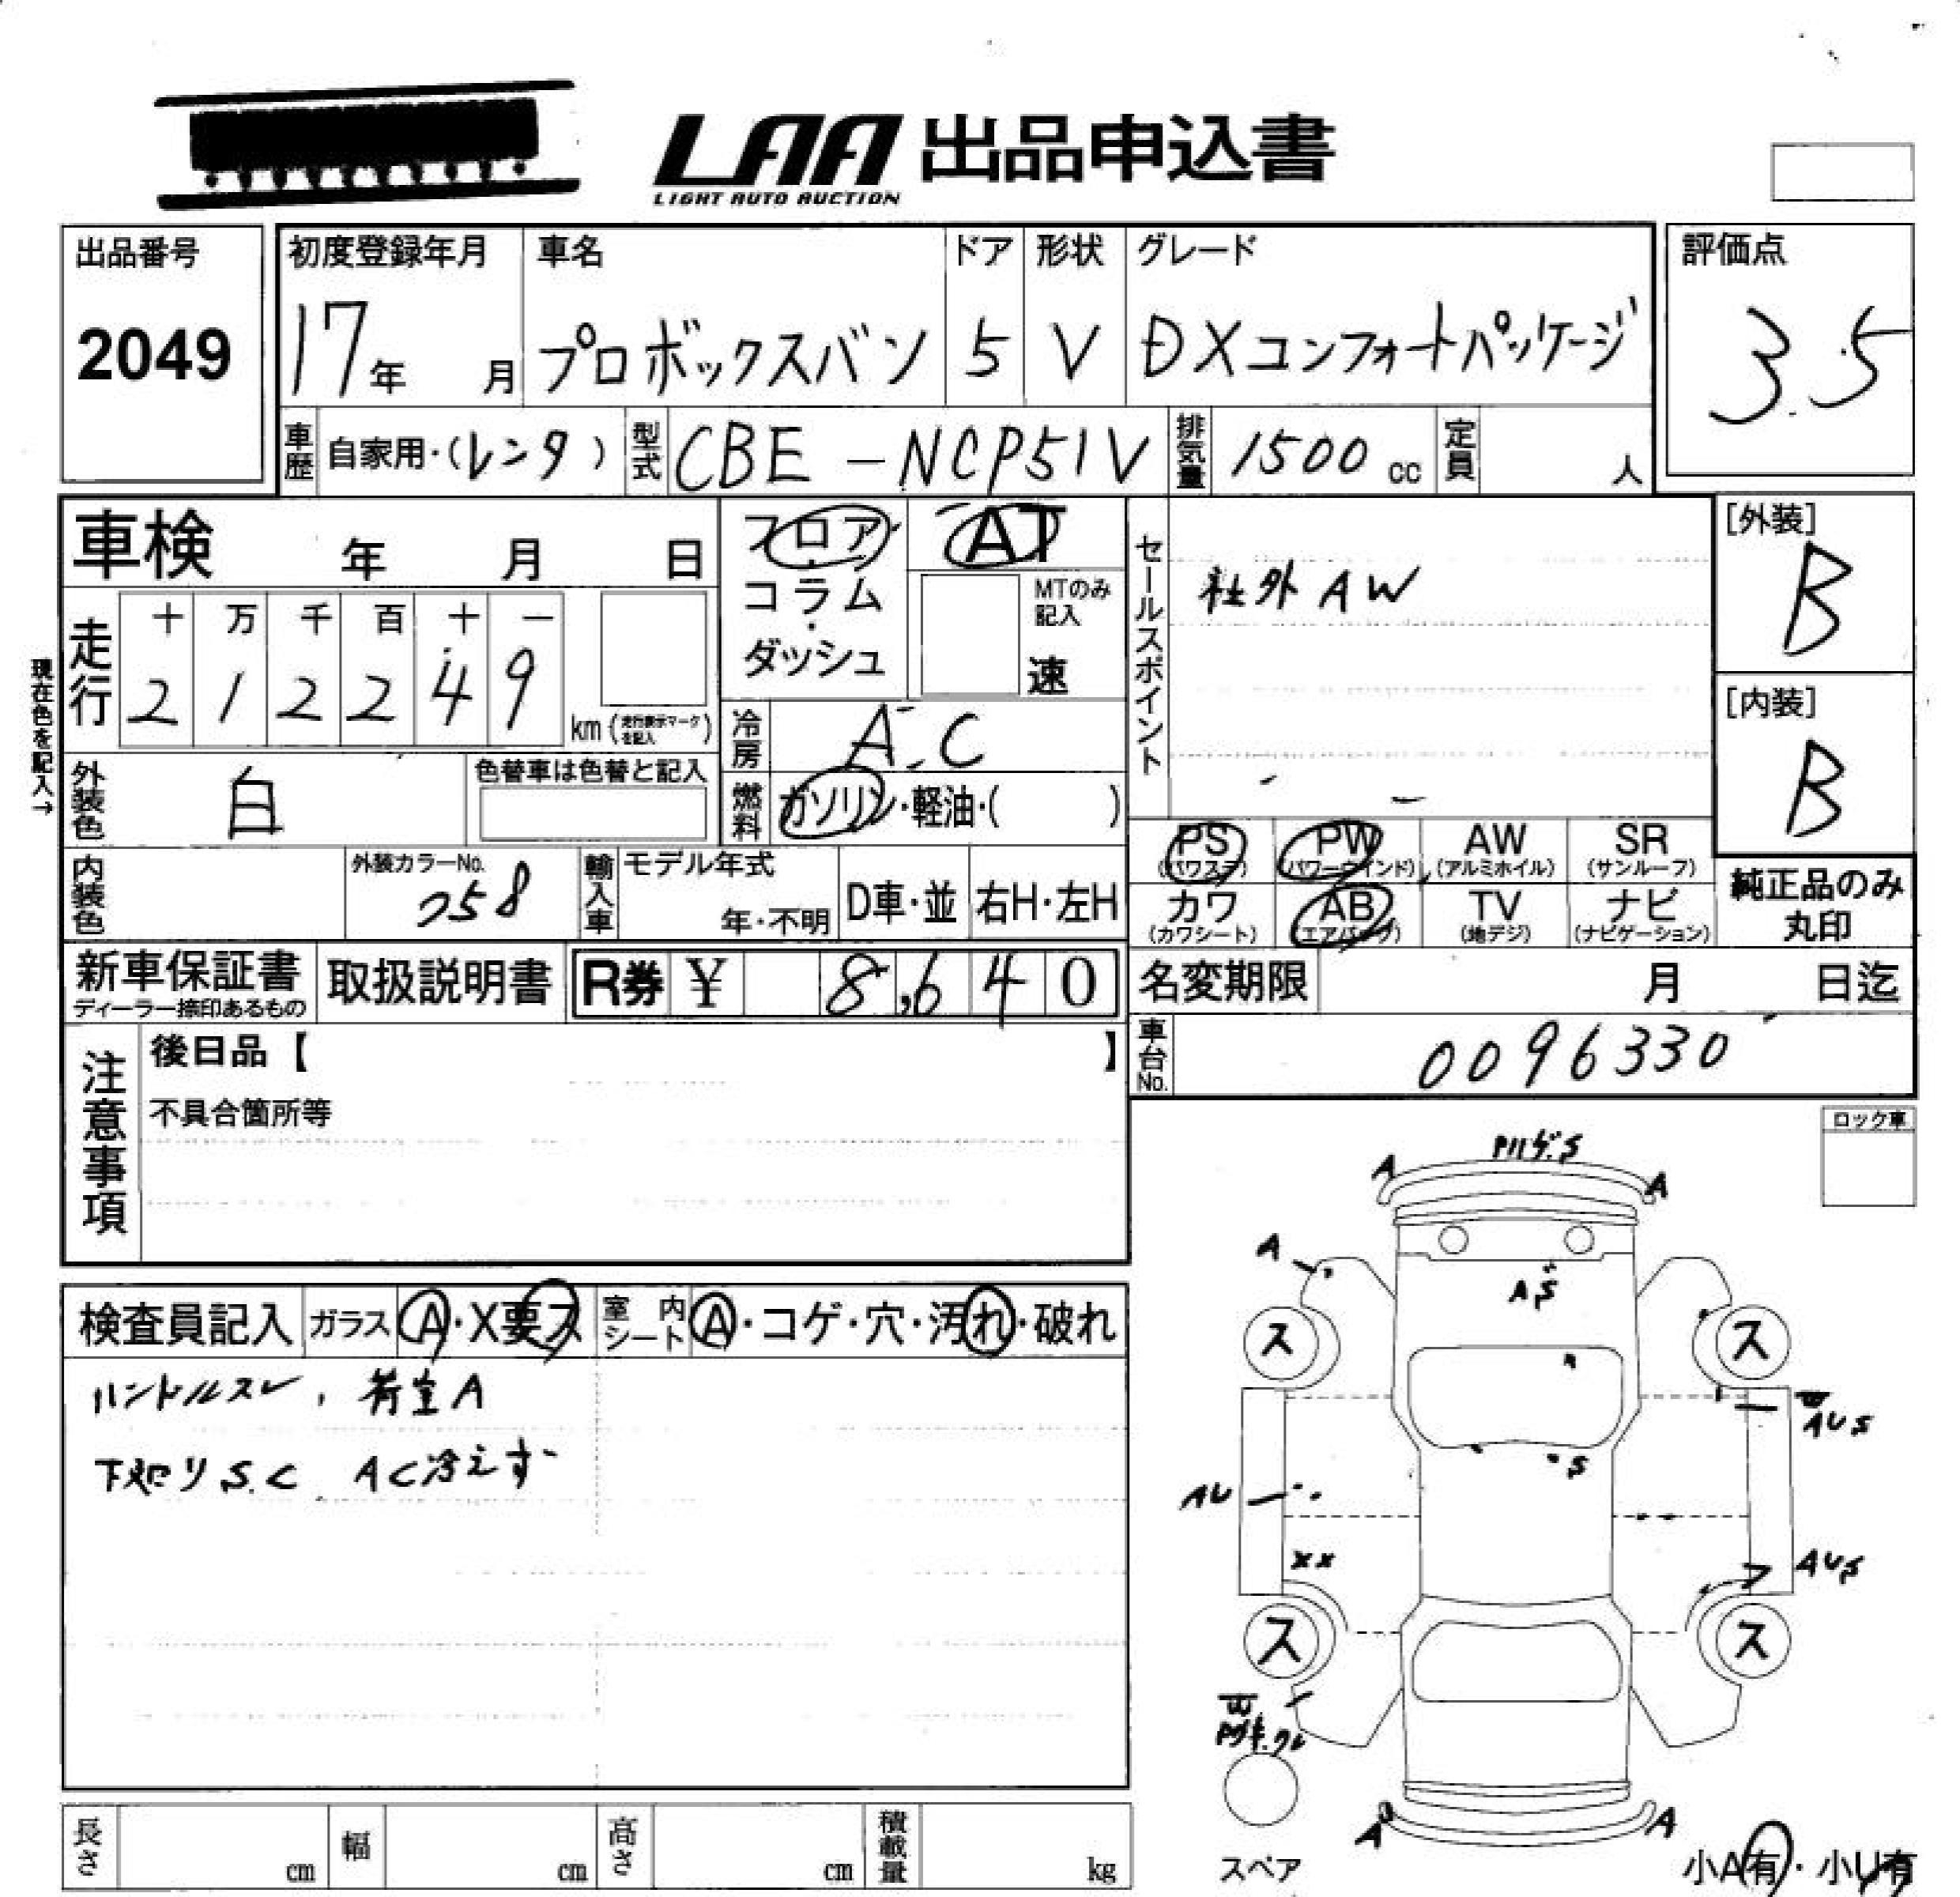 LAA 出品申込書
LIGHT AUTO AUCTION
出品番号
2049
初度登録年月
17年 月
車名
プロボックスバン
ドア
5
形状
V
グレード
DXコンフォートパッケージ
評価点
3.5
車歴 自家用・(レンタ)
型式 CBE-NCP51V
排気量 1500 cc
定員 人
車検 年 月 日
フロア・コラム・ダッシュ
AT
MTのみ記入
速
セールスポイント
社外AW
[外装]
B
[内装]
B
現在色を記入→
走行
十 万 千 百 十 一
2 1 2 2 4 9
km (走行表示マークを記入)
冷房 A.C
燃料 ガソリン・軽油・( )
外装色 白
色替車は色替と記入
内装色
外装カラーNo.
058
輸入車
モデル年式
年・不明
D車・並
右H・左H
PS (パワステ)
PW (パワーウインド)
AW (アルミホイル)
SR (サンルーフ)
カワ (カワシート)
AB (エアバッグ)
TV (地デジ)
ナビ (ナビゲーション)
純正品のみ丸印
新車保証書
ディーラー捺印あるもの
取扱説明書
R券 ¥ 8,640
名変期限 月 日迄
車台No. 0096330
注意事項
後日品【 】
不具合箇所等
ロック車
検査員記入
ガラス A・X要ス
室内シート A・コゲ・穴・汚れ・破れ
ハンドルスレ, 荷室A
下廻りS.C AC冷えず
ハゲ.S
A
A
A
AS
ス
ス
W
AUS
S
AU
XX
AUS
ス
ス
W
A
A
スペア
小A有・小U有
長さ cm
幅 cm
高さ cm
積載量 kg